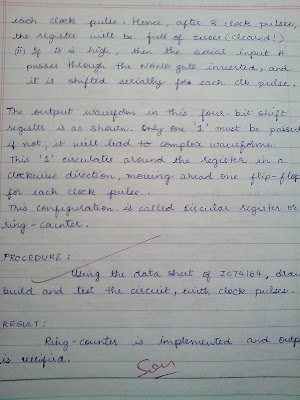 each clock pulse. Hence, after 8 clock pulses,
the register will be full of zeroes (cleared!)
(ii) If B is high, then the serial input A
passes through the NAND gate inverted, and
it is shifted serially for each clk pulse.
The output waveform in this four-bit shift
register is as shown. Only one '1' must be passed
if not, it will lead to complex waveforms.
This '1' circulates around the register in a
clockwise direction, moving ahead one flip-flop
for each clock pulse.
This configuration is called circular register or
ring-counter.
PROCEDURE:
Using the data sheet of IC74164, draw
build and test the circuit, with clock pulses.
RESULT:
Ring-counter is implemented and outp
is verified.